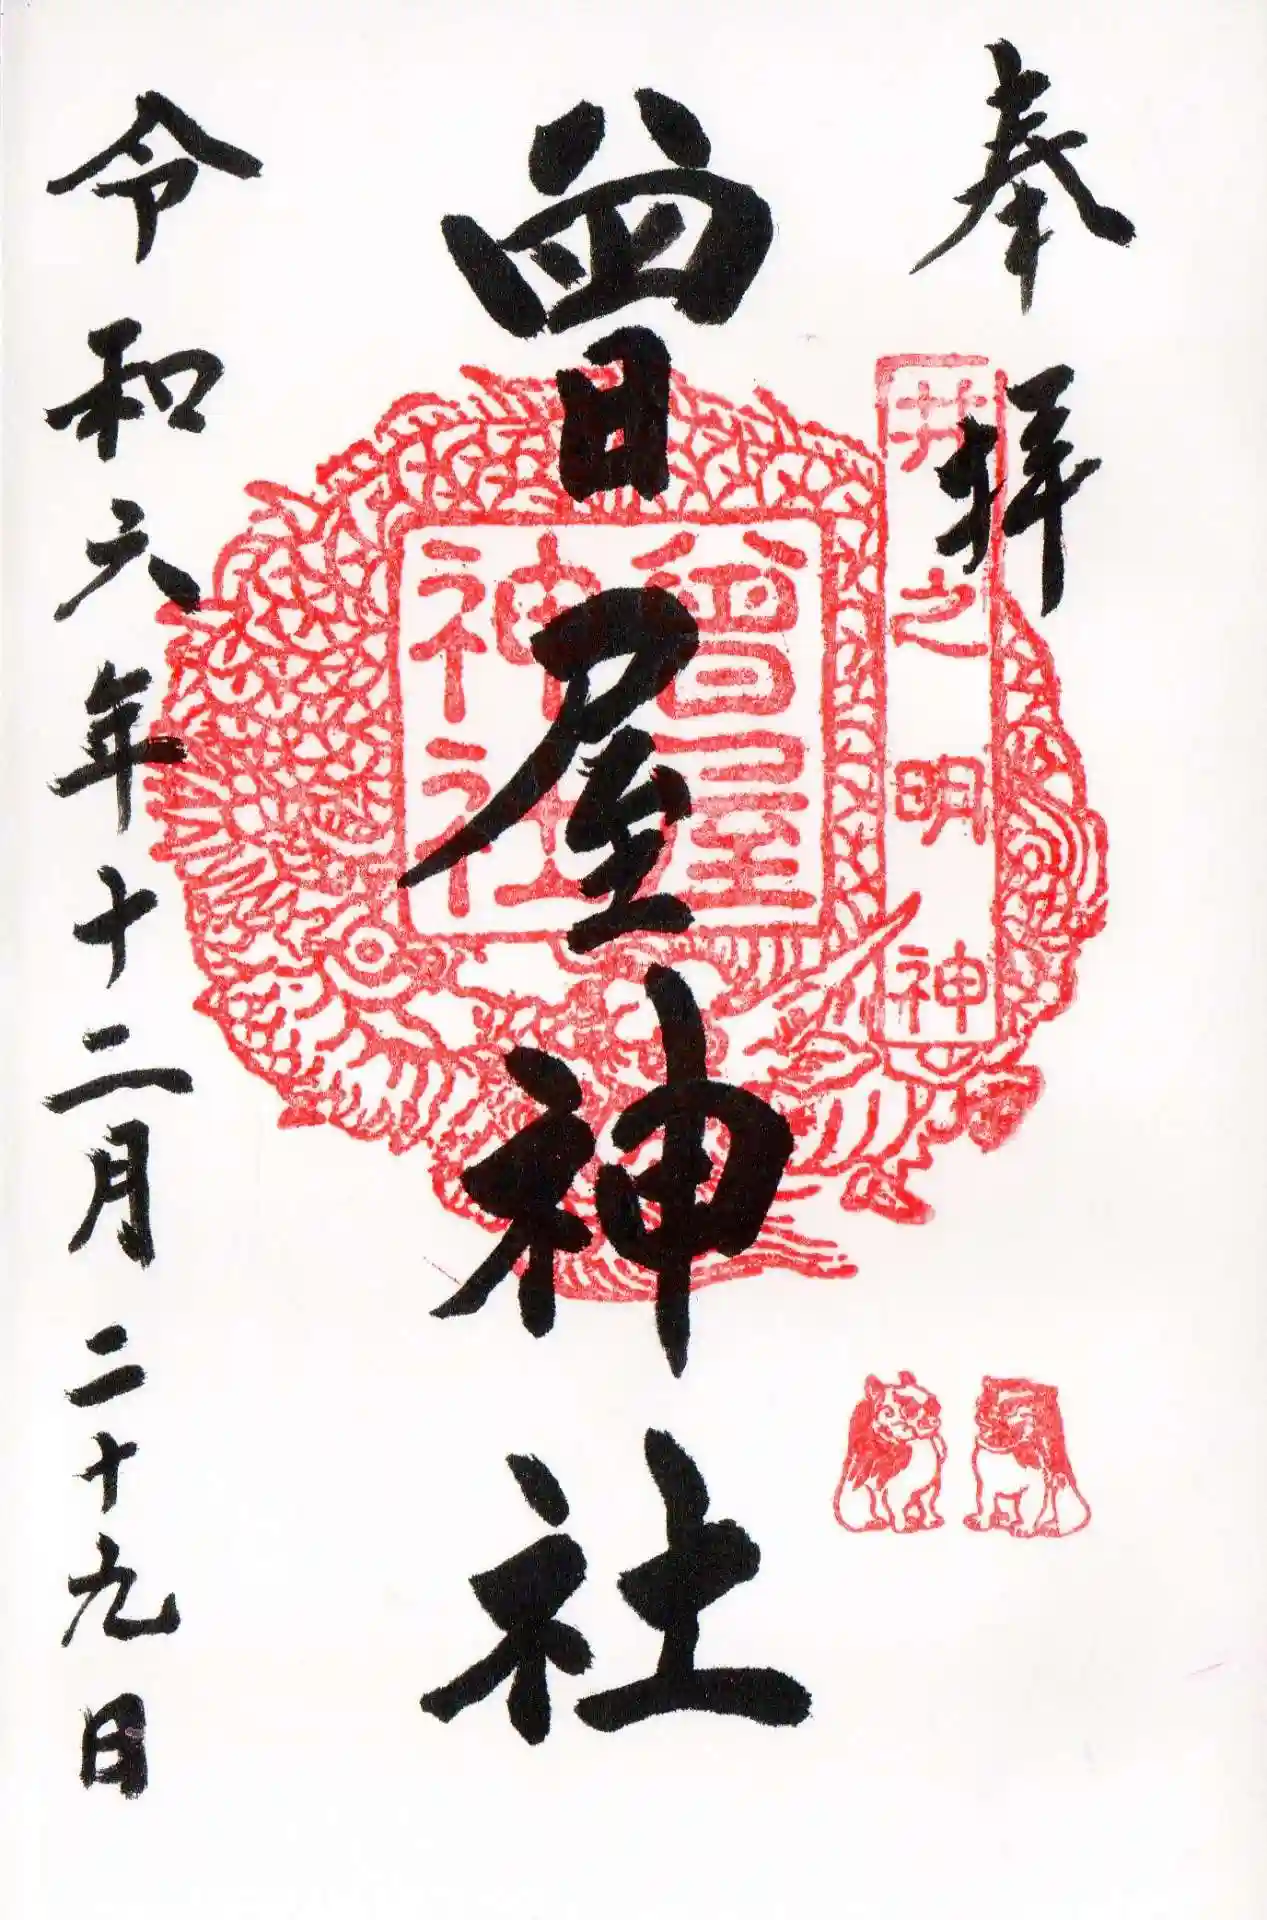 奉拝
井之明神
曽屋神社
曽屋神社
令和六年十二月二十九日